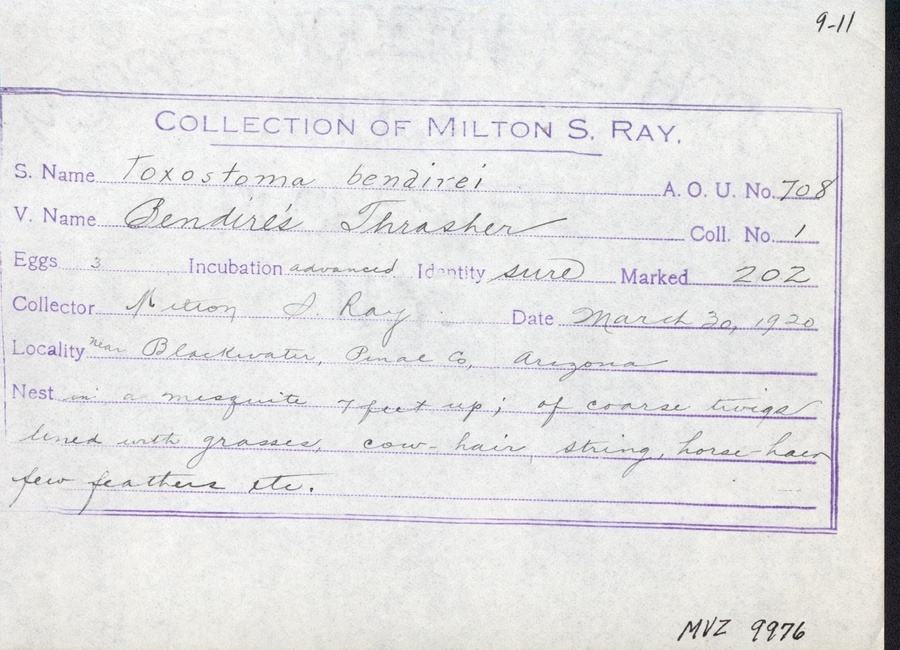 9-11
COLLECTION OF MILTON S. RAY.
S. Name Toxostoma bendirei A. O. U. No. 708
V. Name Bendire's Thrasher Coll. No. 1
Eggs 3 Incubation advanced Identity sure Marked 202
Collector Milton S. Ray Date March 30, 1920
Locality near Blackwater, Pinal Co, Arizona
Nest in a mesquite 7 feet up; of coarse twigs
lined with grasses, cow-hair, string, horse-hair
few feathers etc.
MVZ 9976